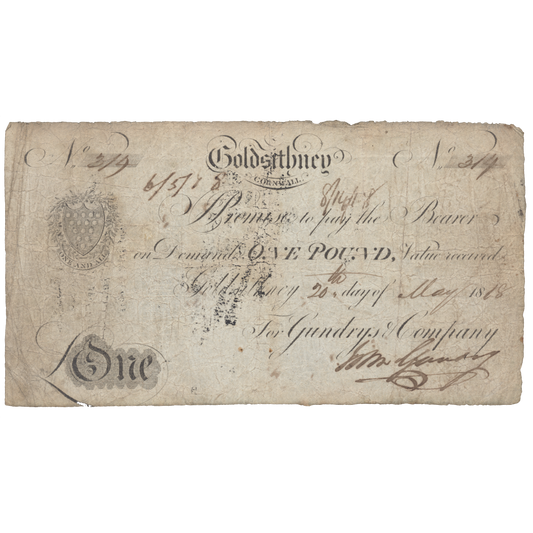 No 319 Goldsithney No 319
CORNWALL
6/5/18 8/14/18
I Promise to pay the Bearer
on Demand ONE POUND, Value received
Goldsithney 20th day of May 1818
For Gundrys & Company
ONE AND ALL
£One
Wm Gundry